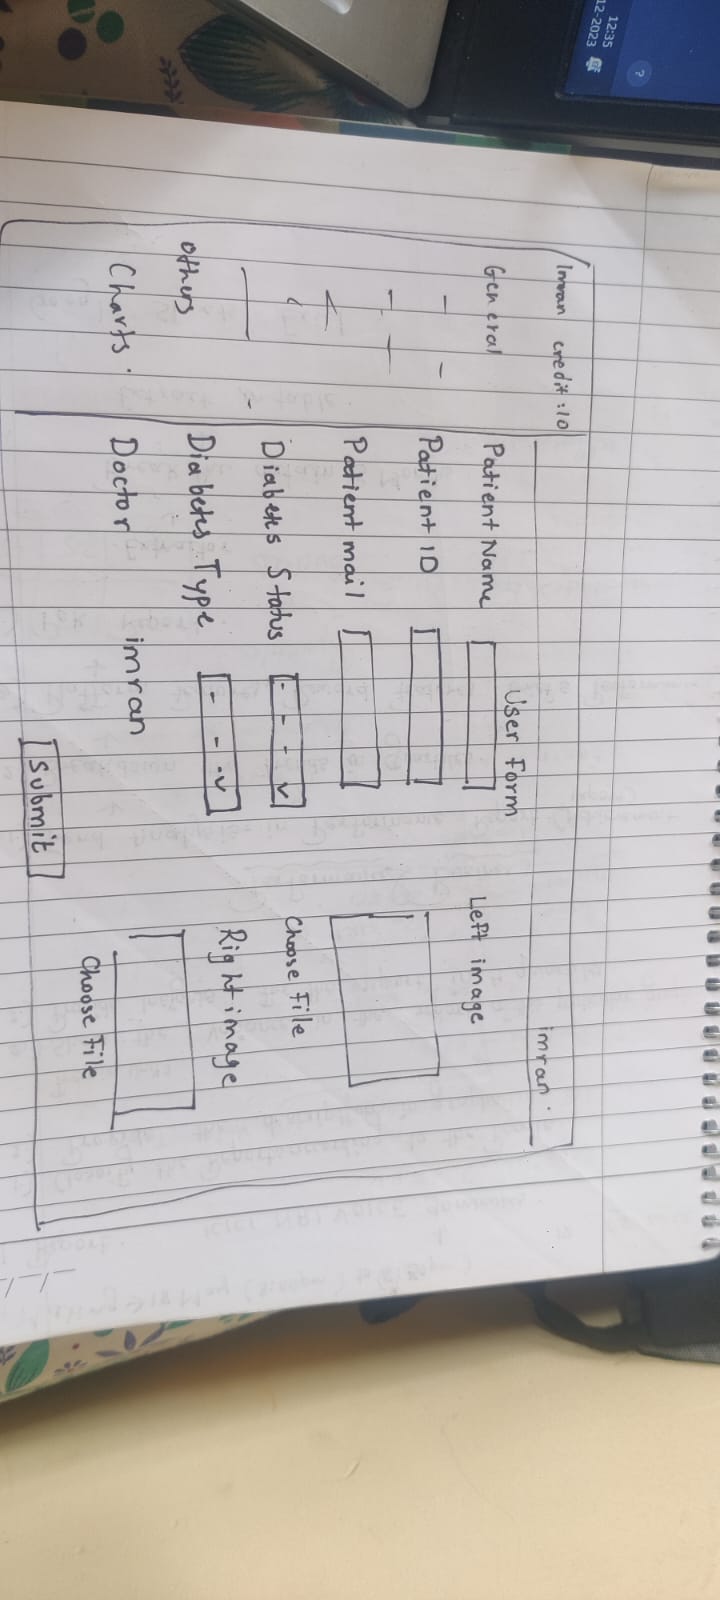 12:35
12-2023
Imran credit :10
imran.
General
Others
Charts.
User Form
Patient Name
Patient ID
Patient mail
Diabetes Status
Diabetes Type
Doctor imran
Submit
Left image
Choose File
Right image
Choose File